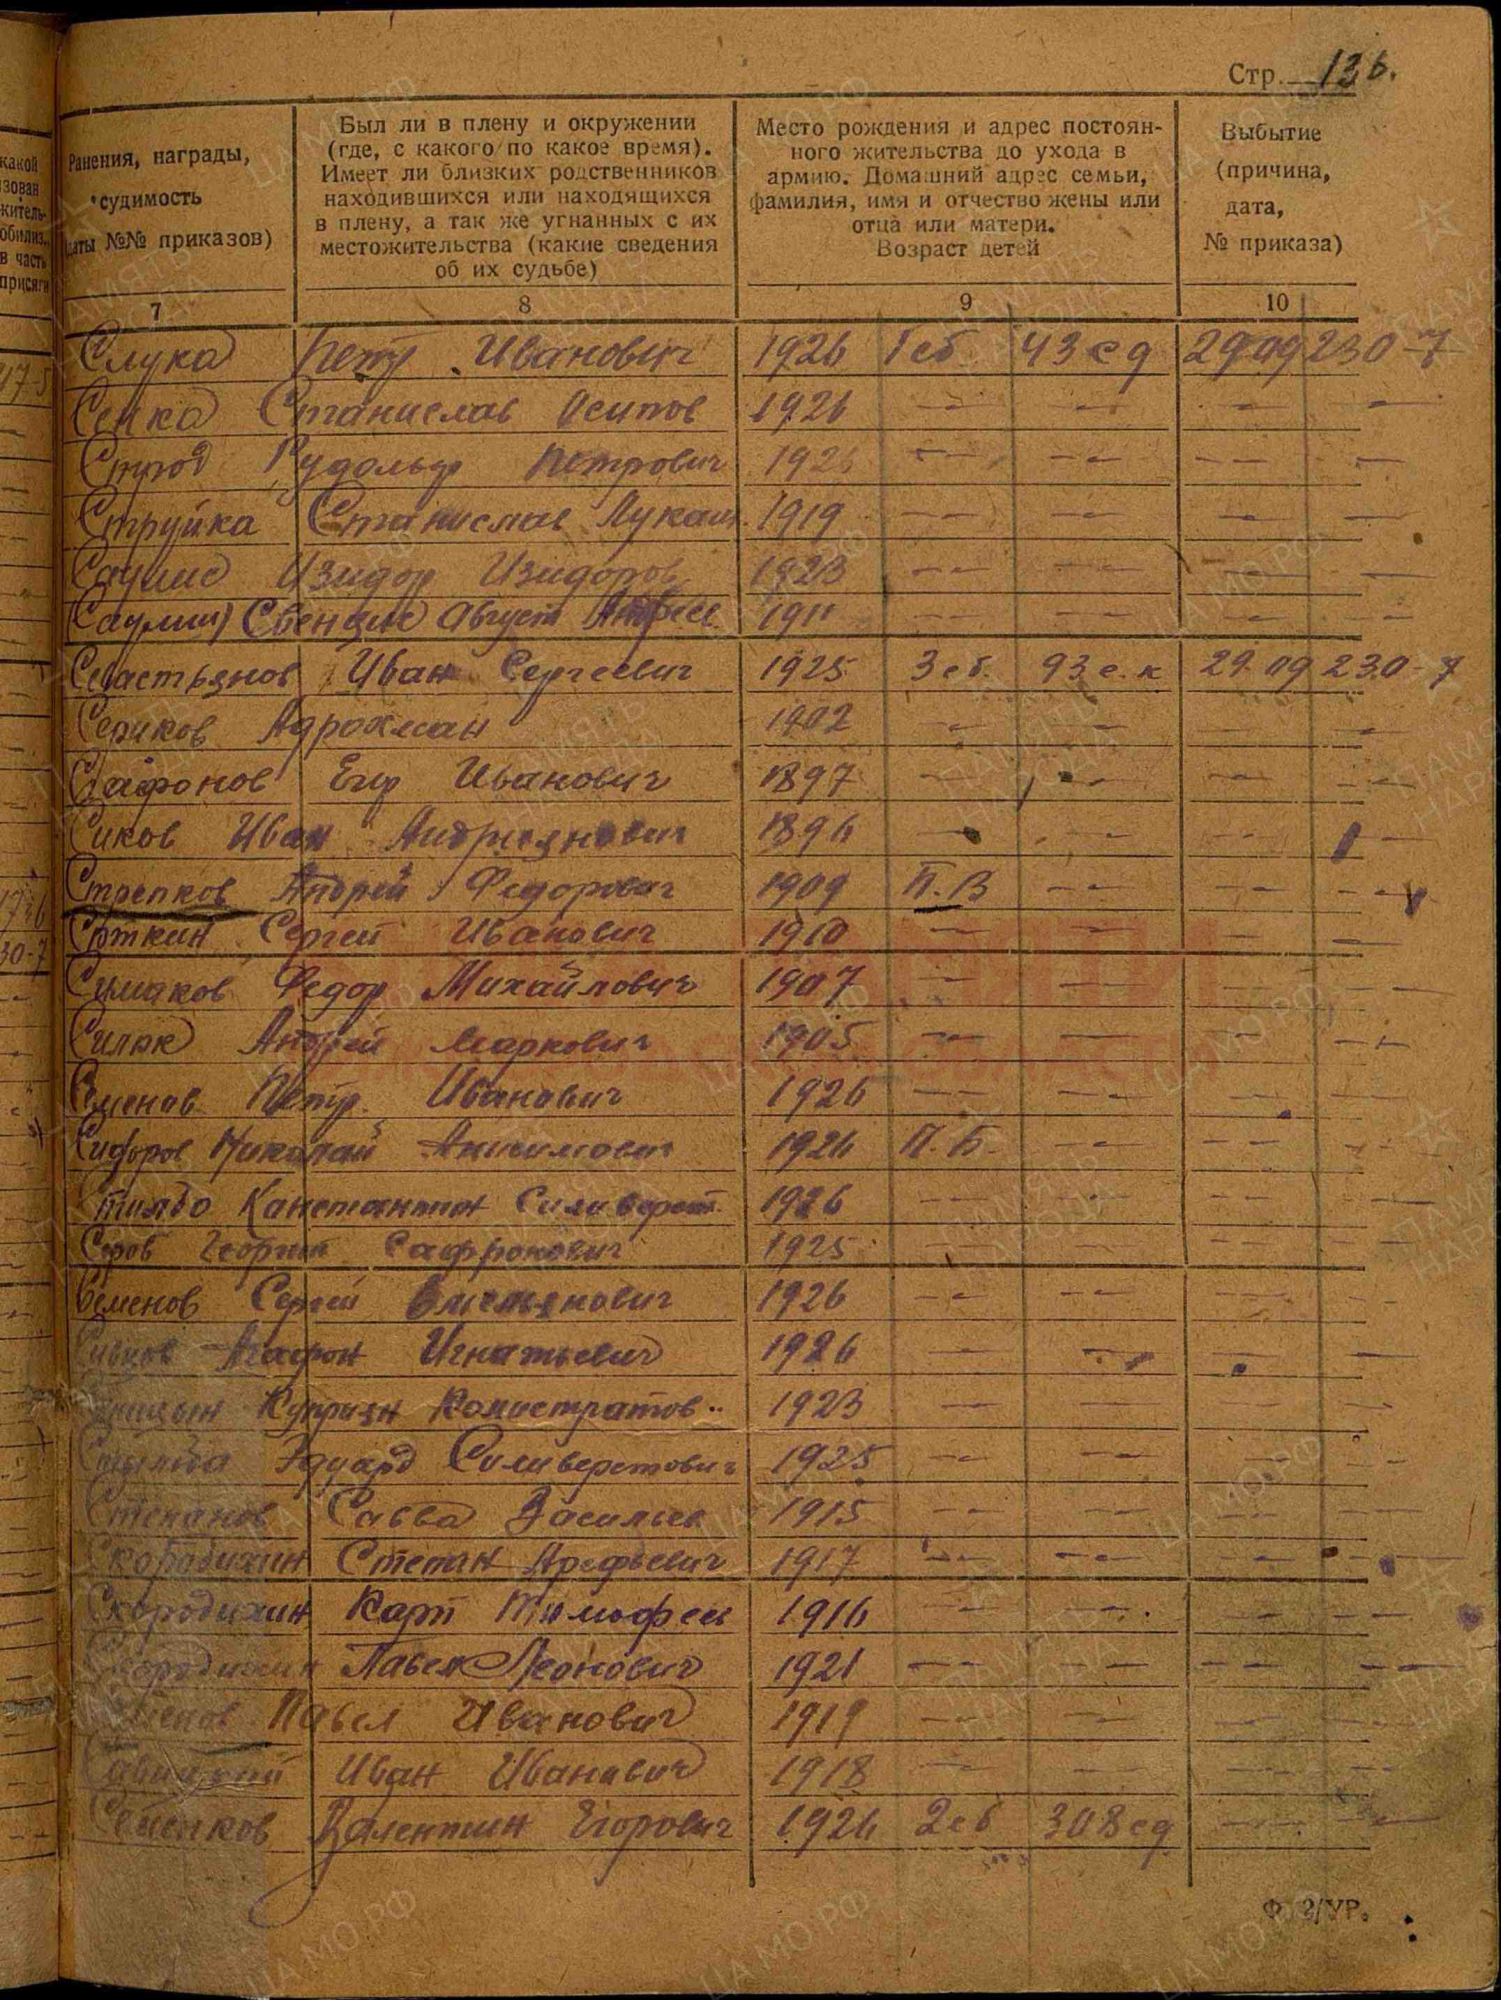 Стр. 136.
Ранения, награды,
судимость
(даты №№ приказов)
Был ли в плену и окружении
(где, с какого по какое время).
Имеет ли близких родственников
находившихся или находящихся
в плену, а так же угнанных с их
местожительства (какие сведения
об их судьбе)
Место рождения и адрес постоян-
ного жительства до ухода в
армию. Домашний адрес семьи,
фамилия, имя и отчество жены или
отца или матери.
Возраст детей
Выбытие
(причина,
дата,
№ приказа)
7 8 9 10
Слука Петр Иванович 1926 1 сб 43 сд 29 09 230-7
Сенка Станислав Осипов 1926 -- -- -- --
Рудольф Петрович 1926 -- -- -- --
Струйка Станислав Лукаш. 1919 -- -- -- --
Изидор Изидоров 1923 -- -- -- --
Свенцис Август 1911 -- -- -- --
Севастьянов Иван Сергеевич 1925 3 сб. 93 с.к 29.09 230-7
Сериков Адрохман 1902 -- -- -- --
Сафонов Егр Иванович 1897 -- -- -- --
Сиков Иван Андриянович 1896 -- -- -- --
Стрепков Андрей Федорович 1909 П.В -- -- --
Сергей Иванович 1910 -- -- -- --
Сумаков Федор Михайлович 1907 -- -- -- --
Андрей Маркович 1905 -- -- -- --
Семенов Петр. Иванович 1926 -- -- -- --
Сидоров Николай Анисимович 1926 П.Б. -- -- --
Канстантин Силиверст. 1926 -- -- -- --
Серов Георгий Сафронович 1925 -- -- -- --
Семенов Сергей Емельянович 1926 -- -- -- --
Сивков Агафон Игнатьевич 1926 -- -- -- --
Куприян Комистратов.. 1923 -- -- -- --
Эдуард Силиверстович 1925 -- -- -- --
Степанов Савва Васильев 1915 -- -- -- --
Скородихин Степан Арефьевич 1917 -- -- -- --
Скородихин Карп Тимофеев 1916 -- -- -- --
Скородихин Павел Леонович 1921 -- -- -- --
Семенов Павел Иванович 1919 -- -- -- --
Савицкий Иван Иванович 1918 -- -- -- --
Семенков Валентин Егорович 1926 2 сб 308 сд -- --
Ф. 2/УР.
ЦАМО.РФ
ПАМЯТЬ
НАРОДА